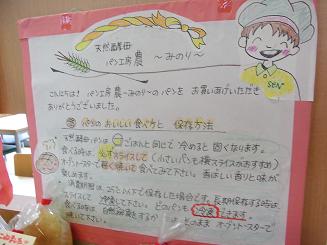 天然酵母
パン工房 農 〜みのり〜
SEN
こんにちは! パン工房 農〜みのり〜の パンを お買いあげいただき
ありがとうございました。
パンの おいしい 食べ方 と 保存方法
天然酵母パンは ごはんと同じで 冷めると 固くなります。
食べる時は、 スライスして (小さいパンも横スライスがおすすめ)
オーブントースターで 軽く焼いて 食べてみて下さい。 香ばしい 香りと味が
楽しめます。
消費期限は 25℃以下で保存した場合です。長期保存する時は
スライスして 冷凍して下さい。 どのパンも 冷凍 できます。
食べる時は 自然解凍をするか そのまま オーブントースターで
焼いて下さい。